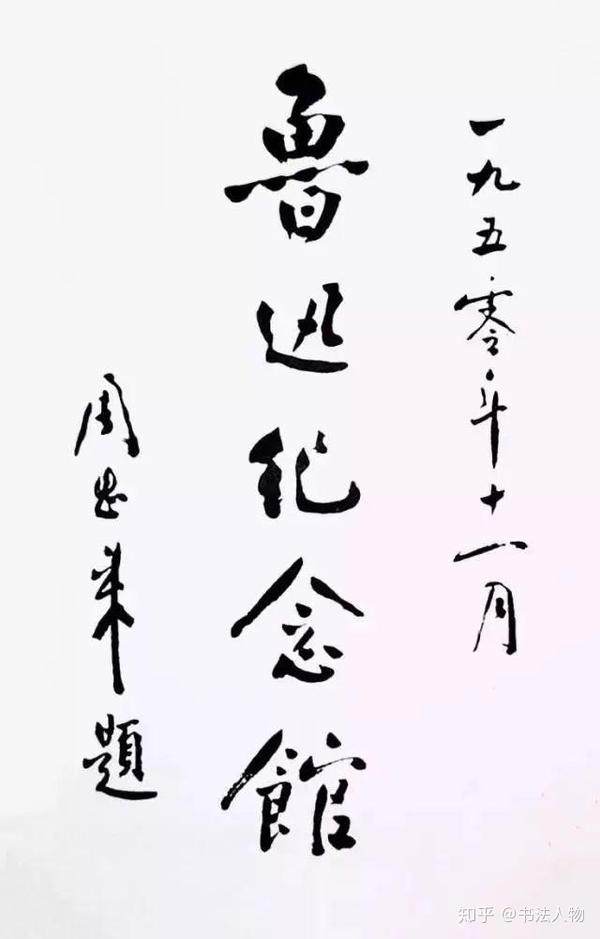 一九五零年十一月
魯迅纪念館
周恩来題
知乎 @书法人物